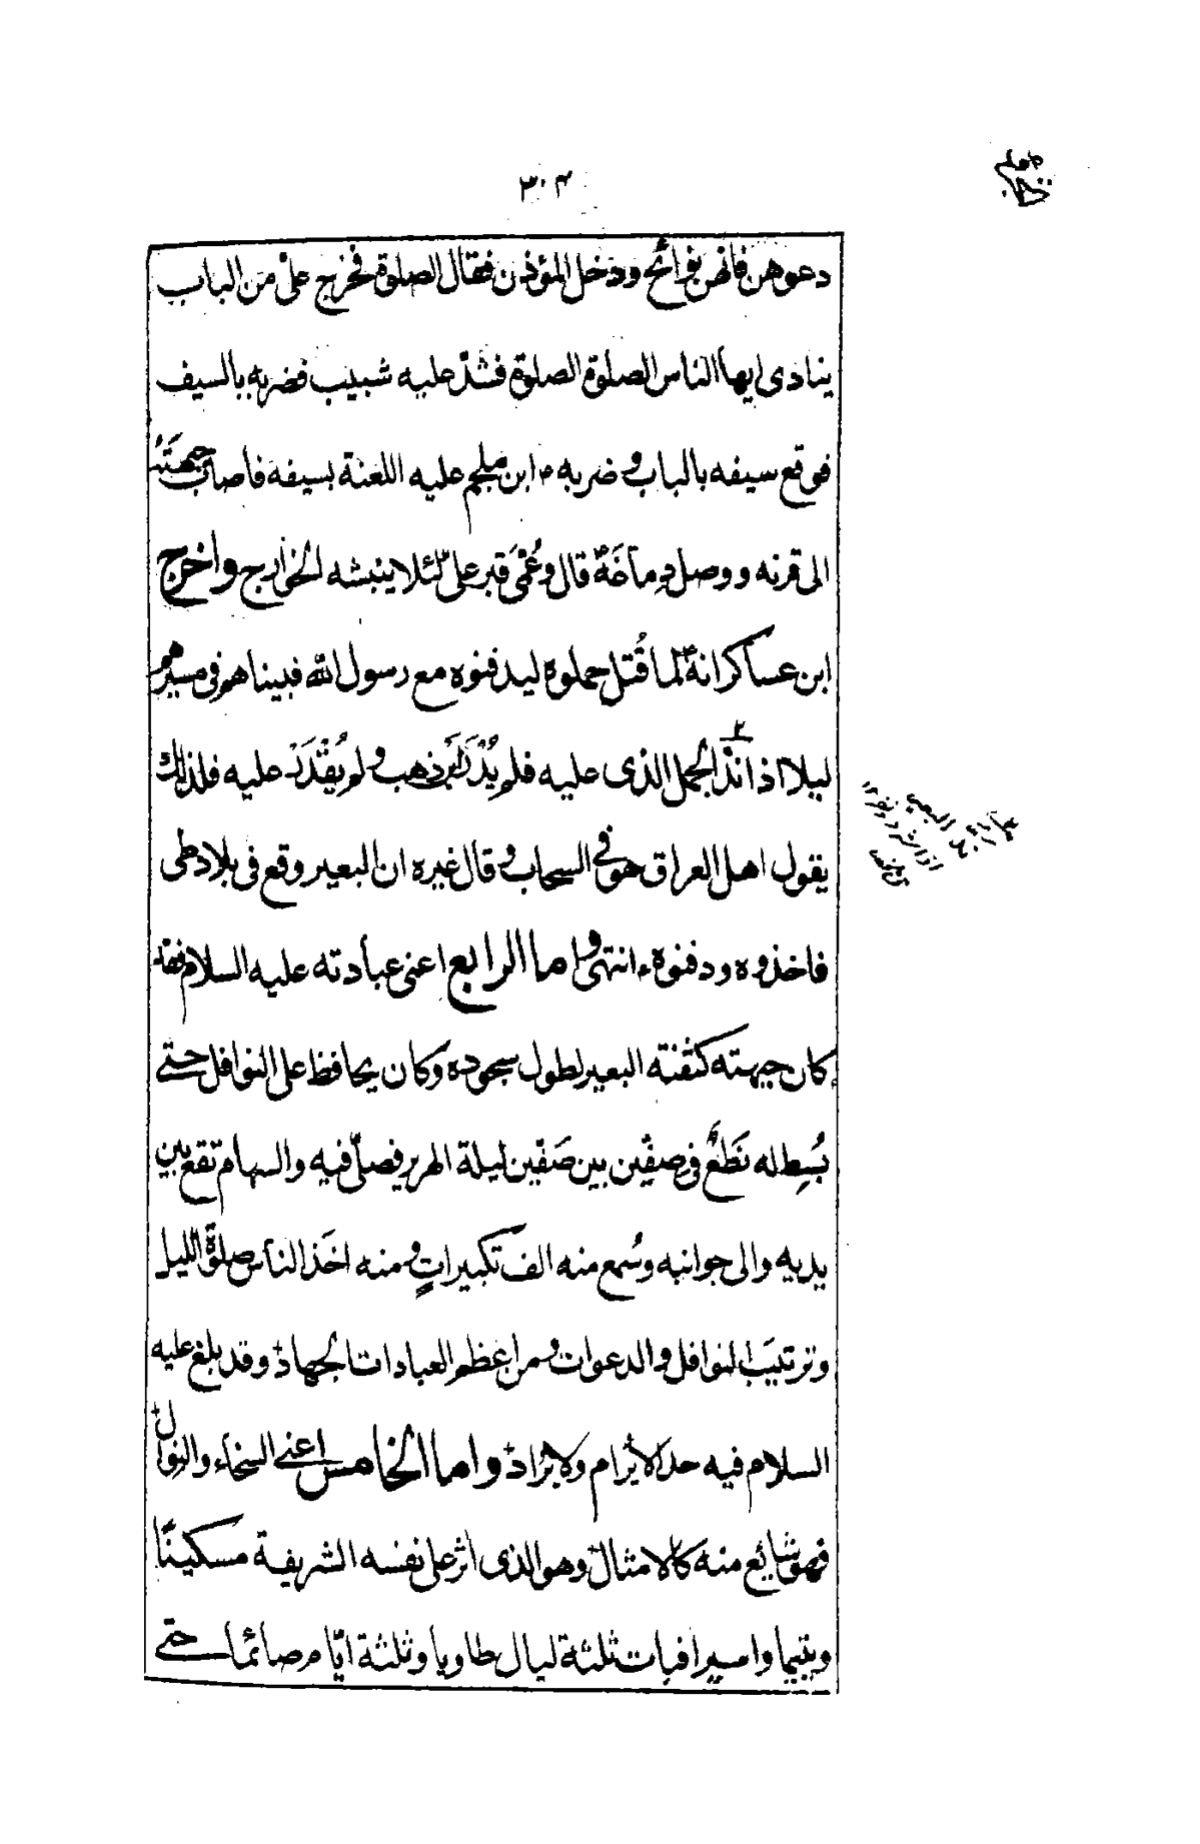 ٣٠٤
دعوهن فانهن نوائح ودخل المؤذن فقال الصلوة فخرج علیّ من الباب
ینادی ایها الناس الصلوة الصلوة فشدّ علیه شبیب فضربه بالسیف
فوقع سیفه بالباب وضربه ابن ملجم علیه اللعنة بسیفه فاصاب جبهته
الی قرنه ووصل دماغه قال وعُمّی قبر علیّ لئلا ینبشه الخوارج واخرج
ابن عساکر انه لما قُتل حملوه لیدفنوه مع رسول الله فبینا هم فی مسیرهم
لیلا اذ اندّ الجمل الذی علیه فلم یُدْرَ این ذهب ولم یُقْدَر علیه فلذلك
یقول اهل العراق هو فی السحاب وقال غیره ان البعیر وقع فی بلاد طی
فاخذوه ودفنوه انتهی واما الرابع اعنی عبادته علیه السلام فقد
کان جبهته کثفنة البعیر لطول سجوده وکان یحافظ علی النوافل حتی
بُسِط له نَطَعٌ فی صفین بین صَفّین لیلة الهریر فصلّی فیه والسهام تقع بین
یدیه والی جوانبه وسُمع منه الف تکبیراتٍ ومنه اخَذ الناس صلوة اللیل
وترتیبَ النوافل والدعوات ومن اعظم العبادات الجهاد وقد بلغ علیه
السلام فیه حدا لا یُرام ولا یُراد واما الخامس اعنی السخاء والنوال
فهو شائع منه کالامثال وهو الذی اثر علی نفسه الشریفة مسکینًا
ویتیما واسیرا فبات ثلثة لیال طاویا وثلثة ایّام صائما حتی